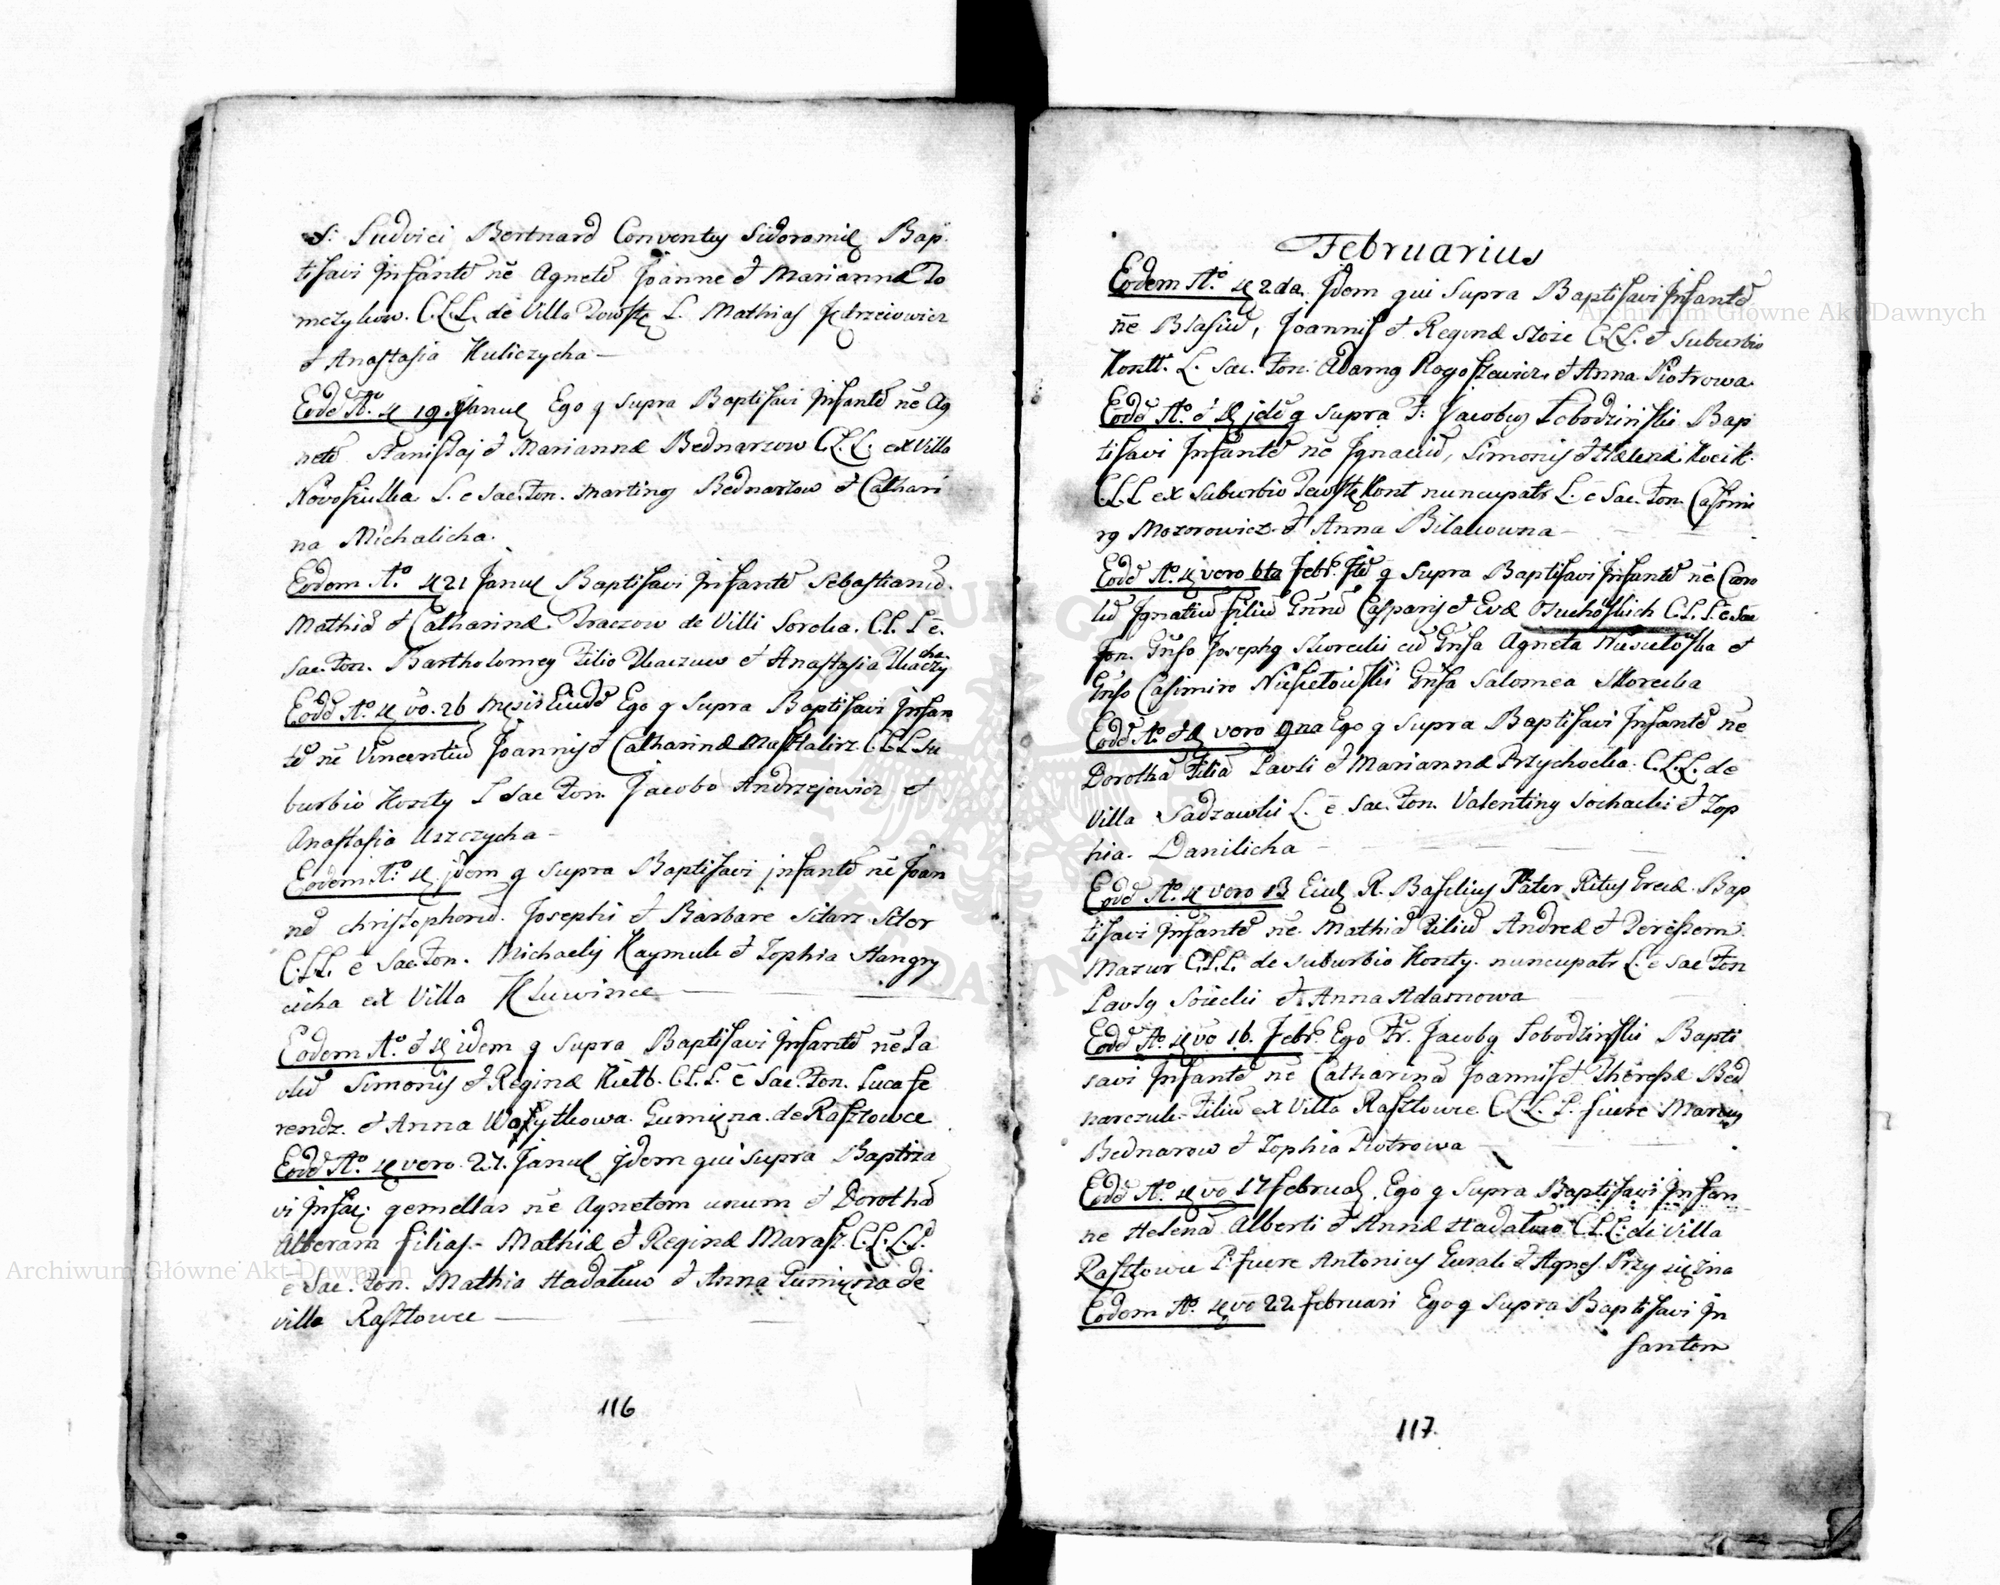 S: Ludvici Bertnard Conventus Sidoromiē Bap-
tisavi Infantē nē Agnetē Joanne et Mariannæ To
mczykow. C.L.L. de Villa Towste L. Mathias Jędrzeiowicz
et Anastasia Kuliczycha —
Eodē Aō. 19 Januę Ego q supra Baptisavi Infantē nē Ag
netē Stanislaj et Mariannæ Bednarzow C.L.L. ex Villa
Novosiulka L. e Sac. Fon. Martinus Bednarzow et Cathari
na Michalicha.
Eodem Aō. 21 Januę Baptisavi Infantē Sebastianū.
Mathiæ et Catharinæ Traczow de Villi Soroka. C.L.L ē.
Sac. Fon. Bartholomey Filio Tkaczuw et Anastasia Tkaczy
cha
Eodē Aō. vo. 26 Ego q supra Baptisavi Infan
tē nē Vincentiū Joannis et Catharinæ Mastalirz C.L.L. su
burbio Konty L e Sac Fon. Jacobo Andrzejowicz et
Anastasia Uszczycha —
Eodem Aō. jdem q supra Baptisavi infantē nē Joan
nē christophorū. Josephi et Barbare Sitarz Sitor
C.L.L. ē Sac. Fon. Michaelis Kaymuk et Zophia Hangry
cicha ex Villa Kluwince
Eodem Aō. et idem q supra Baptisavi Infantē nē Pa
olū Simonis et Reginæ Kietb. C.L.L. ē Sac. Fon. Luca fe
rendz. et Anna Wasytkowa Gumięna de Rasztowce
Eodē Aō. vero 27. Januę Jdem qui supra Baptiza
vi Infāe: gemellas nē Agnetem unum et Dorothā
Alteram filias. Mathiæ et Reginæ Marasz. C.L.L.
ē Sac. Fon. Mathia Hadatuw et Anna Gumięna de
villa Rasztowce —
116
Februarius
Eodem Aō. 2da. Jdem qui Supra Baptisavi Infantē
nē Blasiū, Joannis et Reginæ Stoie C.L.L. et Suburbio
Kontt. L. Sac. Fon. Adamus Rogoszewicz et Anna Piotrowa
Eodē Aō. et jdē q supra F: Jacobus Lobodzinski Bap
tisavi Infantē nē Jgnaciū, Simonis et Helenæ Kocik.
C.L.L ex Suburbio Towste Kont nuncupatr L. ē Sac. Fon. Casimi
rus Mozorowicz et Anna Bilakowna
Eodē Aō. vero 6ta Febr. Jdē q supra Baptisavi Infantē nē Caro
lū Jgnatiū filiū Gnnū Casparis et Evæ Osuchoskich C.L.L. ē Sac
Fon. Gnso Josephus Skorecki cū Gnsa Agneta Husulowska et
Gnso Casimiro Niesietoiwski Gnsa Salomea Skorecka
Eodē Aō. et vero 9na Ego q supra Baptisavi Infantē nē
Dorothā Filiā Pavli et Mariannæ Przychocka. C.L.L. de
Villa Sadzawki L. ē Sac. Fon. Valentinus Sochacki et Zop
hia. Danilicha
Eodē Aō. vero 13 R. Basilius Pater Ritus Grecæ Bap
tisavi Infantē nē. Mathiā Filiū Andreæ et Teressem.
Mazur C.L.L. de suburbio Konty. nuncupatr L. ē Sac Fon
Pavlus et Anna Adamowa
Eodē Aō vo 16. Febr. Ego Fr. Jacobus Lobodzinski Bapti
savi Infantē nē Catharinā Joannis et Thēresæ Bed
narczuk. Filiū ex Villa Rasztowce C.L.L. P. fuere Marcus
Bednarow et Zophia Piotrowa
Eodē Aō. vo 17 februaŕ. Ego q supra Baptisavi Infan
ne Helenā Alberti et Annæ Hadatuw C.L.L. de Villa
Rasztowce P. fuere Antonius Guralc et Agnes. Przysiężna
Eodem Aō. vo 22 februari Ego q supra Baptisavi In
fantem
117.
Archiwum Główne Akt Dawnych
Archiwum Główne Akt Dawnych